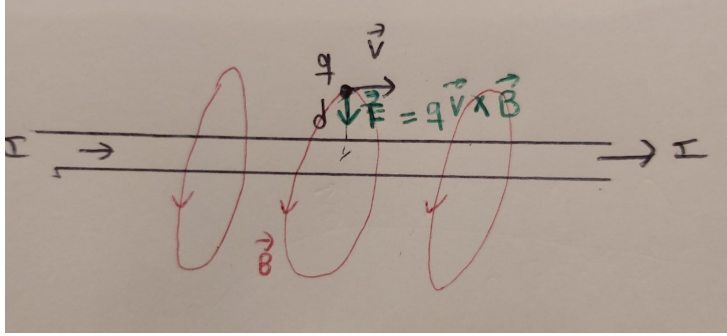 q
V⃗
d F⃗ = qV⃗ × B⃗
I
I
B⃗